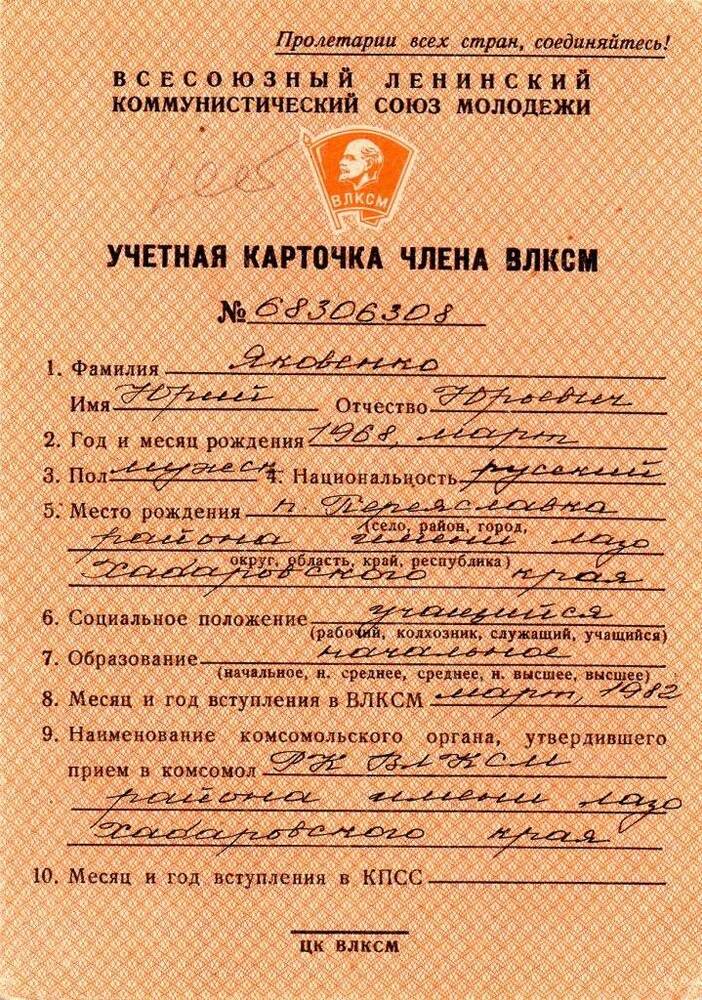 Пролетарии всех стран, соединяйтесь!
ВСЕСОЮЗНЫЙ ЛЕНИНСКИЙ
КОММУНИСТИЧЕСКИЙ СОЮЗ МОЛОДЕЖИ
ВЛКСМ
УЧЕТНАЯ КАРТОЧКА ЧЛЕНА ВЛКСМ
№ 68306308
1. Фамилия Яковенко
Имя Юрий Отчество Юрьевич
2. Год и месяц рождения 1968, март
3. Пол мужеск 4. Национальность русский
5. Место рождения п. Переяславка
(село, район, город,
района имени лазо
округ, область, край, республика)
Хабаровского края
6. Социальное положение учащийся
(рабочий, колхозник, служащий, учащийся)
7. Образование начальное
(начальное, н. среднее, среднее, н. высшее, высшее)
8. Месяц и год вступления в ВЛКСМ март, 1982
9. Наименование комсомольского органа, утвердившего
прием в комсомол РК ВЛКСМ
района имени лазо
Хабаровского края
10. Месяц и год вступления в КПСС
ЦК ВЛКСМ